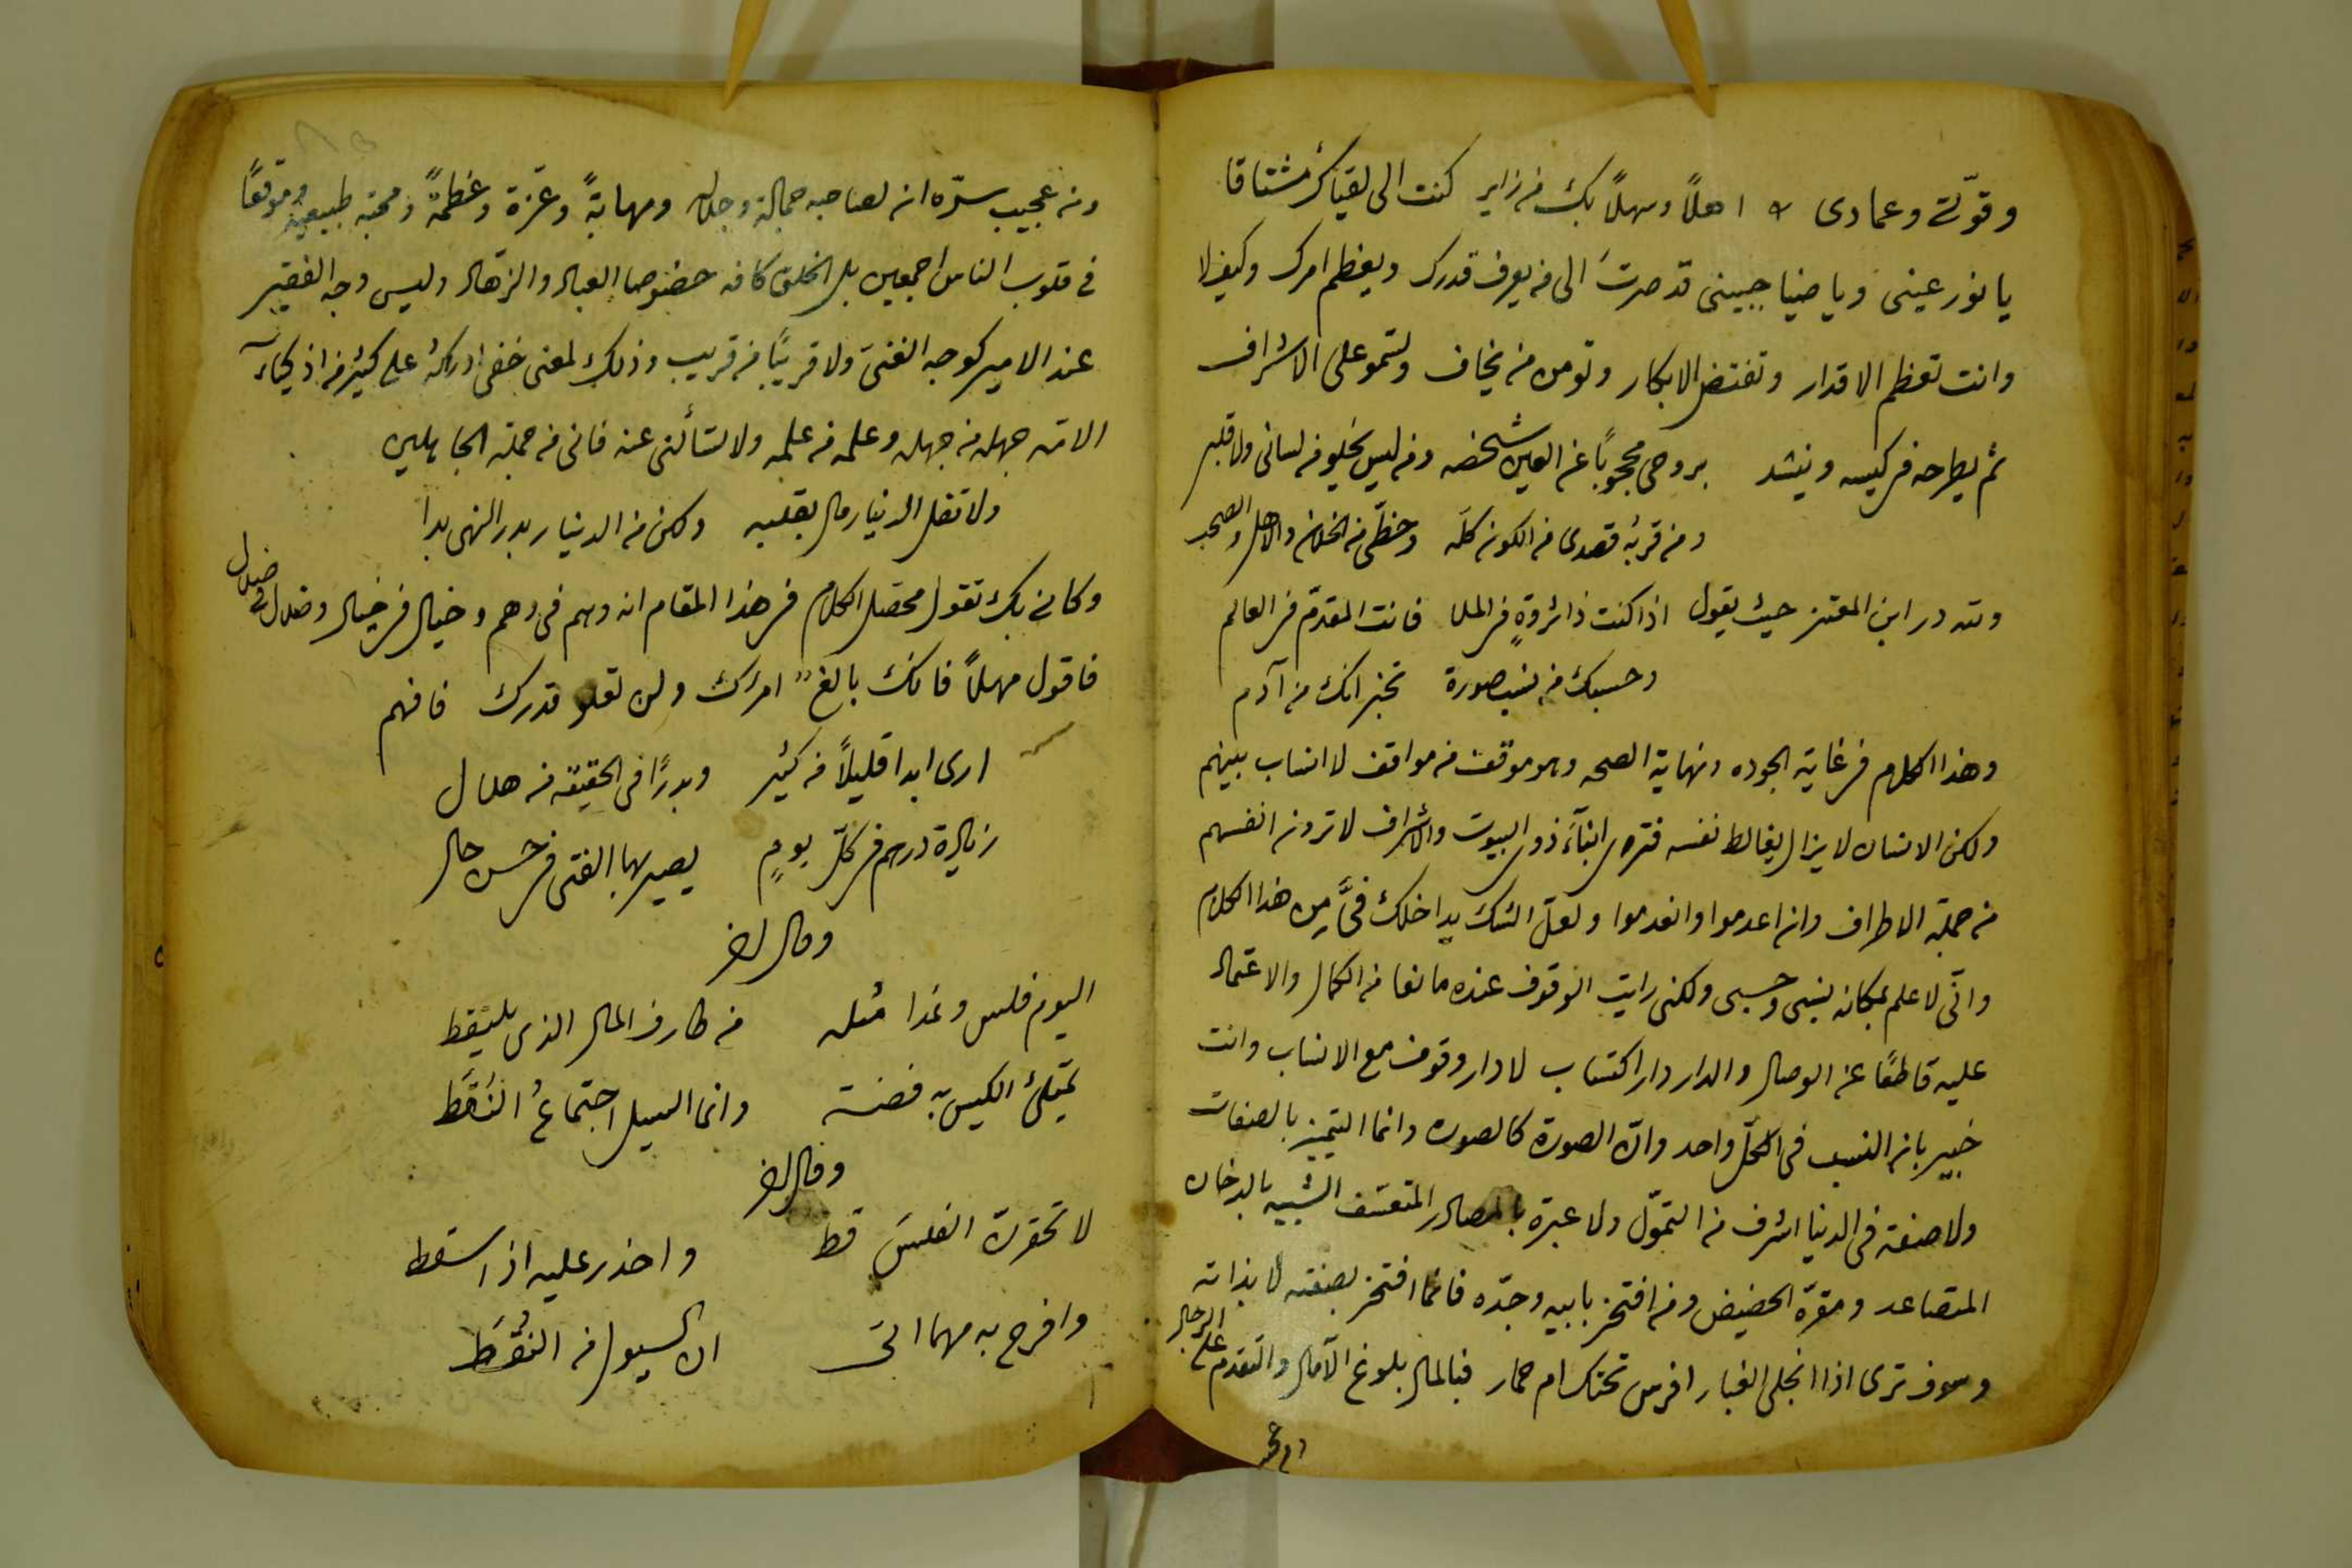 وقوّتى وعمادى اهلاً وسهلاً بك من زاير كنت الى لقياك مشتاقا
يا نور عينى ويا ضيا جبينى قد صرتَ الى من يعرف قدرك ويعظم امرك وكيف لا
وانت تعظم الاقدار وتفتض الابكار وتومن من يخاف وتسمو على الاشراف
ثم يطرحه فى كيسه وينشد بروحى محجوبًا عن العين شخصه ومن ليس يخلو من لسانى ولا قلبى
ومن قربهُ قصدى من الكون كلّه وحظّى من الخلان والاهل والصحب
ولله در ابن المعتز حيث يقول اذا كنت ذا ثروةٍ فى الملا فانت المقدّم فى العالم
وحسبك من نسب صورة تخبر انك من آدم
وهذا الكلام فى غاية الجوده ونهاية الصحه وهو موقف من مواقف لا انساب بينهم
ولكن الانسان لا يزال يغالط نفسه فترى ابنآءَ ذوى البيوت والاشراف لا ترون انفسهم
من جملة الاطراف وان اعدموا وانعدموا ولعلّ الشك يداخلك فىَّ من هذا الكلام
وانّى لاعلم بمكان نسبى وحسبى ولكنى رايت الوقوف عنده مانعا من الكمال والاعتماد
عليه قاطعًا عن الوصال والدار دار اكتساب لا دار وقوف مع الانساب وانت
خبير بان النسب فى الكلّ واحد وانّ الصورة كالصوره وانما التميز بالصفات
ولا صفة فى الدنيا اشرف من التموّل ولا عبرة بالمصادر المتعسّف الشبيه بالدخان
المتصاعد ومقرّه الحضيض ومن افتخر بابيه وجدّه فانما افتخر بصفته لا بذاته
وسوف ترى اذا انجلى الغبار افرس تحتك ام حمار فبالمال بلوغ الآمال والتقدم على الرجال
ومن عجيب سرّه ان لصاحبه جمالة وجلاله ومهابةً وعزّة وعظمةً ومحبّه طبيعيّه وموقعًا
فى قلوب الناس اجمعين بل الخلق كافه خصوصا العباد والزهاد وليس وجه الفقير
عند الامير كوجه الغنىّ ولا قريبًا من قريب وذلك لمعنى خفى ادراكهُ على كثير من اذكيآء
الامّه جهله من جهله وعلمه من علمه ولا تسألنى عنه فانى من جملة الجاهلين
ولا تقل الدينار مال بقلبه ولكن من الدينار بدر النهى بدا
وكانى بك تقول محصل الكلام فى هذا المقام انه وهم فى وهم وخيال فى خيال وضلال فى ضلال
فاقول مهلاً فانك بالغ امرك ولن تعلو قدرك فافهم
ارى ابدا قليلاً من كثير وبدرًا فى الحقيقه من هلال
زيادة درهم فى كلّ يومٍ يصير بها الفتى فى حسن حال
وقال ايضا
اليوم فلس وغدا مثله من طارف المال الذى يلتقط
يمتلئ الكيس به فضة وانما السيل اجتماعُ النُقَط
وقال ايضا
لا تحقرنّ الفلسَ قط واحذر عليه اذا سقط
وافرح به مهما اتى ان السيول من النُقَط